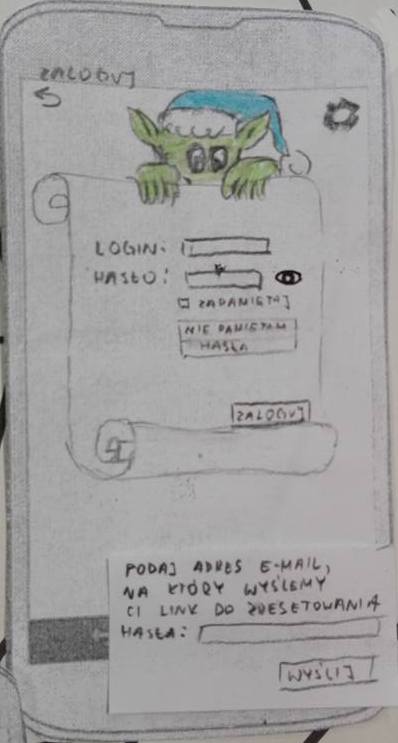 ZALOGUJ
LOGIN:
HASŁO:
ZAPAMIĘTAJ
NIE PAMIĘTAM
HASŁA
ZALOGUJ
PODAJ ADRES E-MAIL,
NA KTÓRY WYŚLEMY
CI LINK DO ZRESETOWANIA
HASŁA:
WYŚLIJ